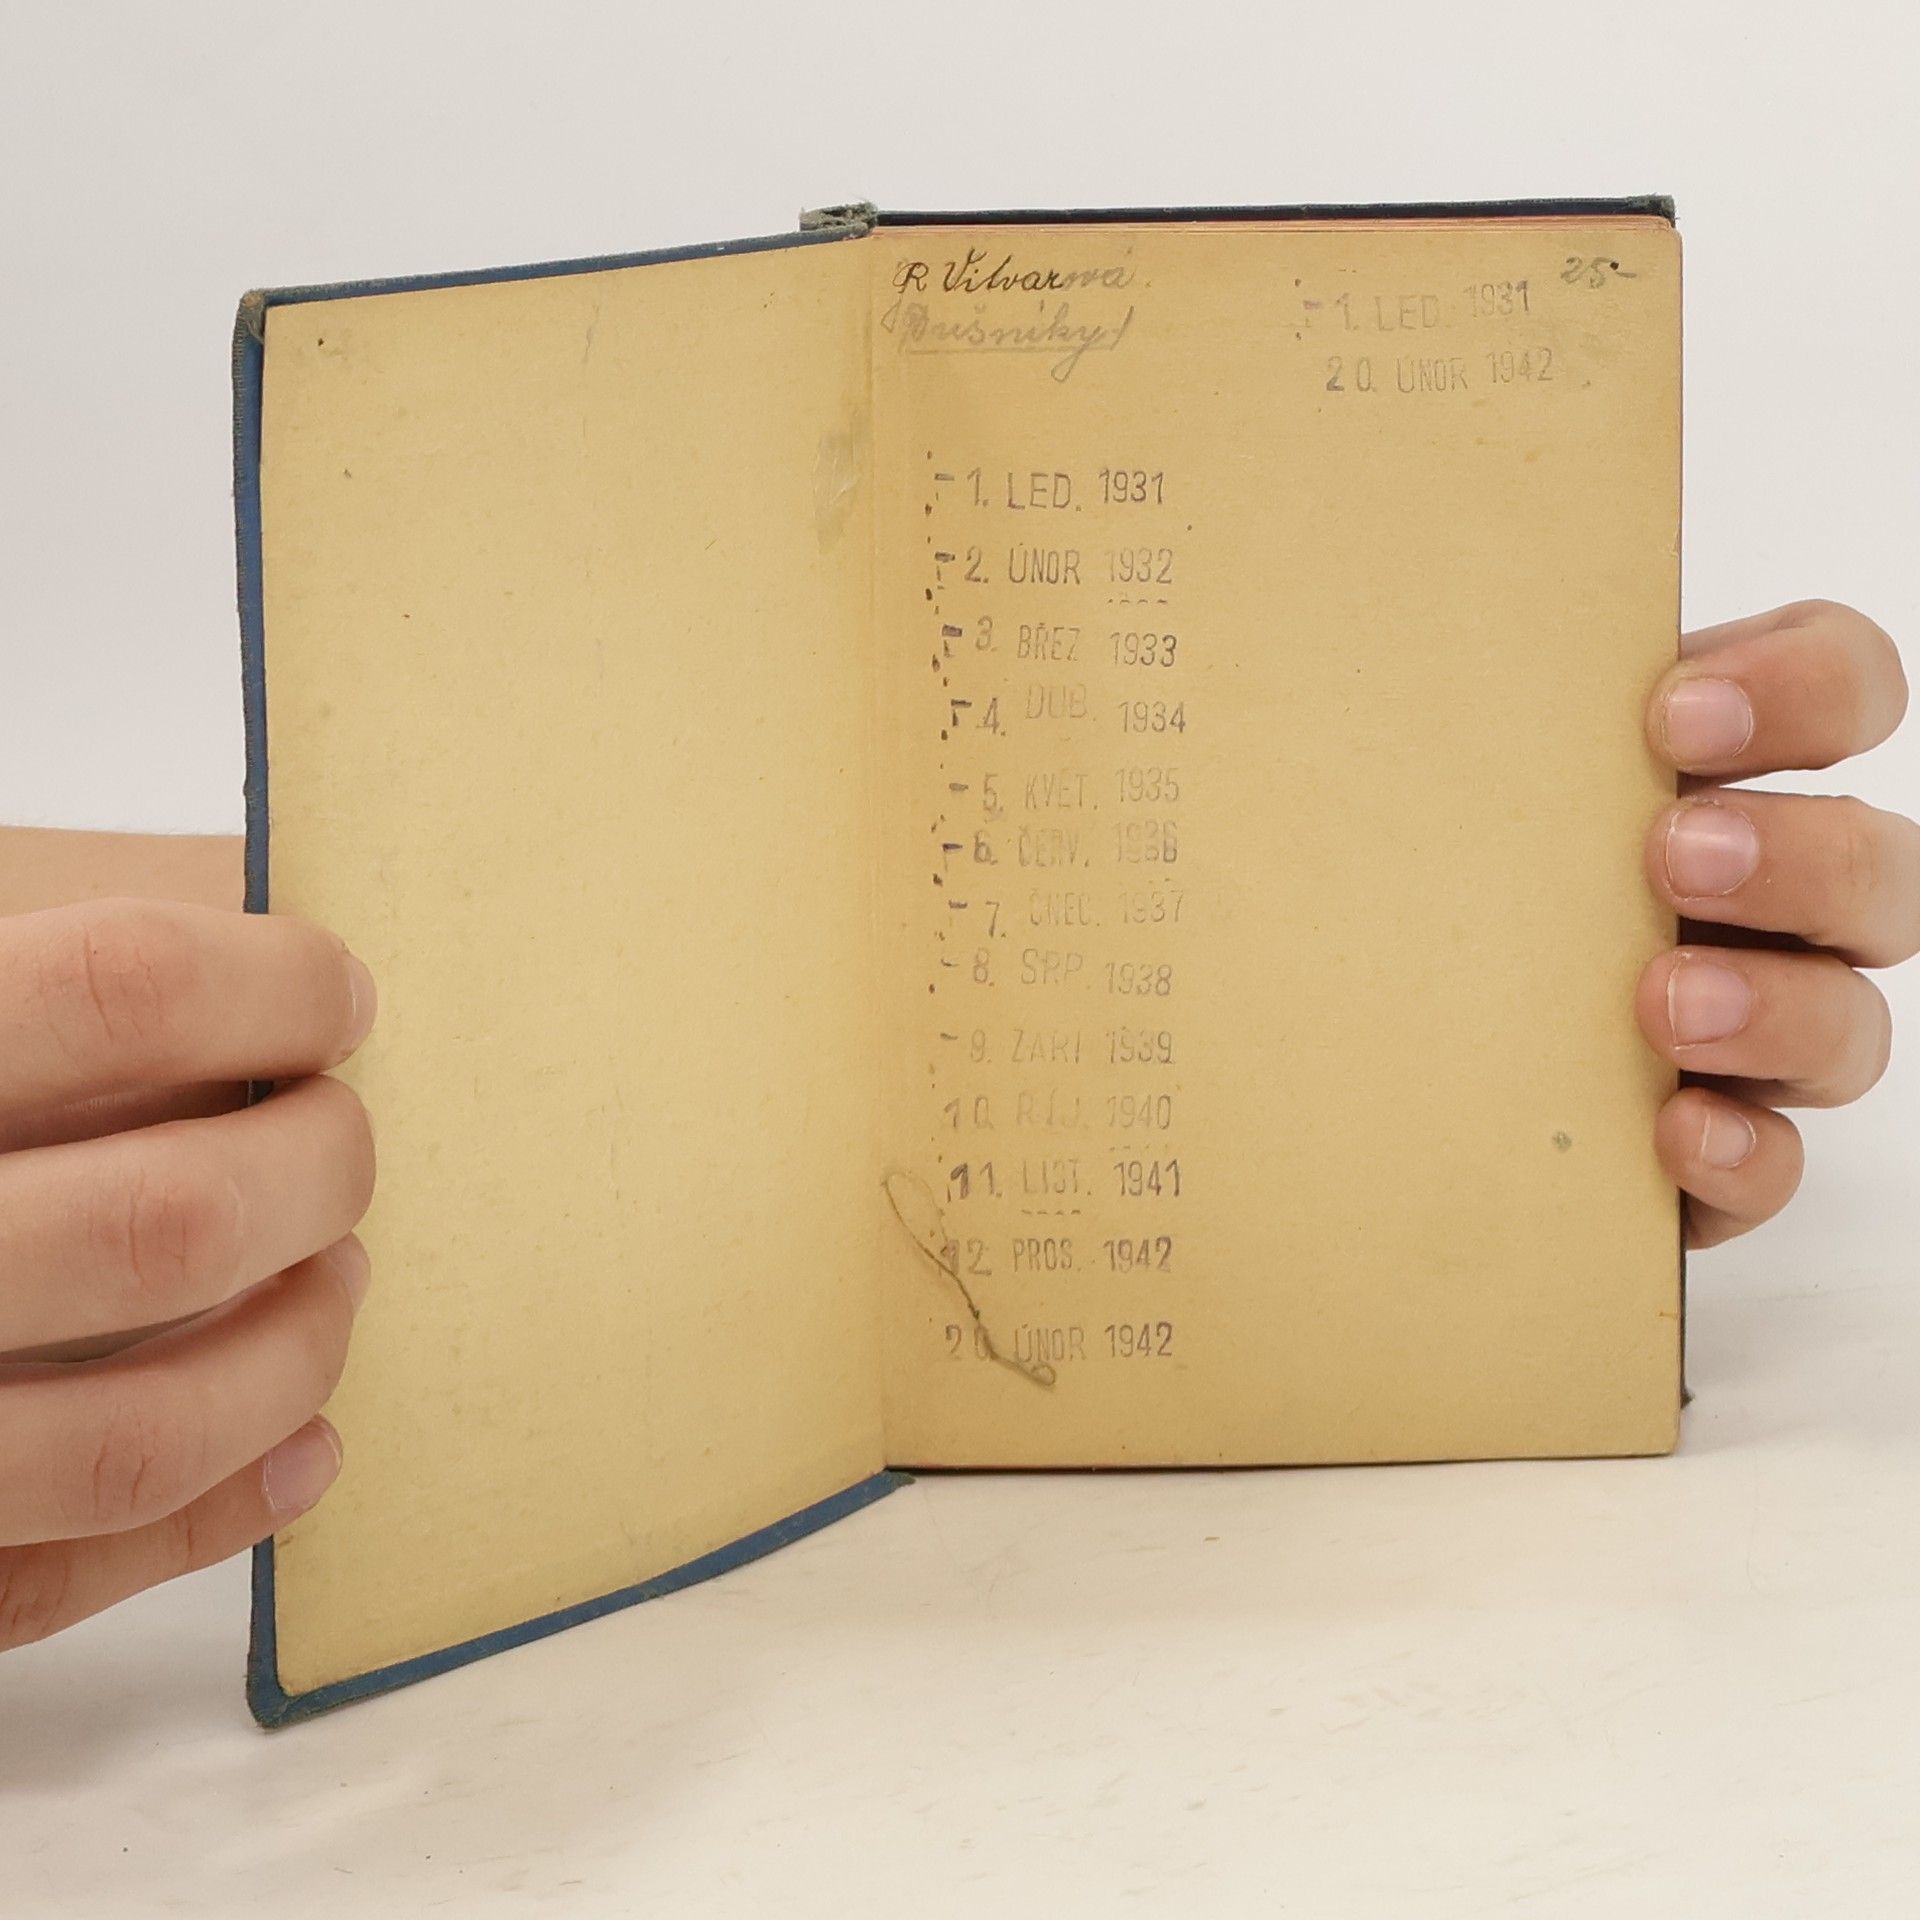 R Vitvarová
Dušníky
25-
- 1. LED. 1931
20. ÚNOR 1942
- 1. LED. 1931
- 2. ÚNOR 1932
- 3. BŘEZ 1933
- 4. DUB. 1934
- 5. KVĚT. 1935
- 6. ČERV. 1936
- 7. ČNEC. 1937
- 8. SRP. 1938
- 9. ZÁŘÍ 1939
10. ŘÍJ. 1940
11. LIST. 1941
12. PROS. 1942
20. ÚNOR 1942